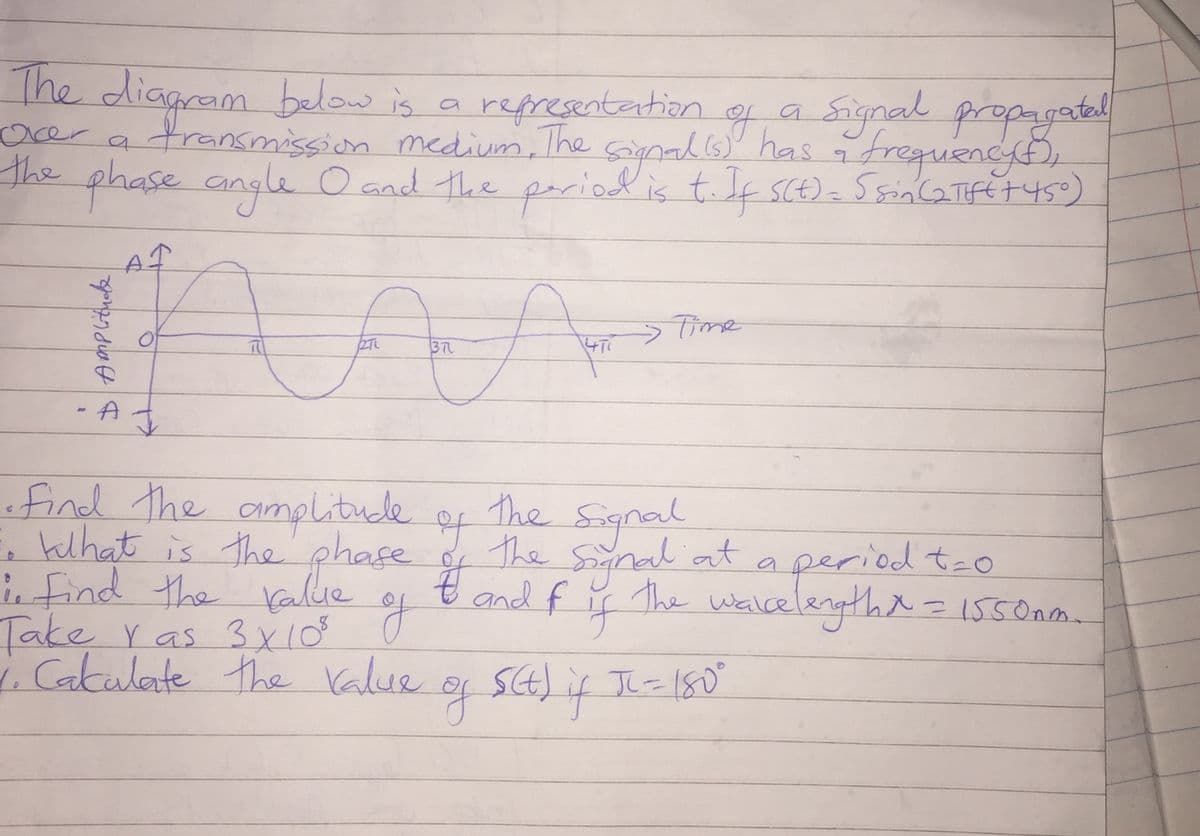 The diagram below is a representation of a signal propagated
over a transmission medium. The signal(s) has a frequency(f),
the phase angle O and the period is t. If s(t) = 5 sin(2πft+45°)
A
Amplitude
O
π
2π
3π
4π
Time
- A
. find the amplitude of the signal
. What is the phase of the signal at a period t=0
i. find the value of t and f if the wavelength λ = 1550nm.
Take v as 3x10⁸
. Calculate the value of s(t) if π=180°